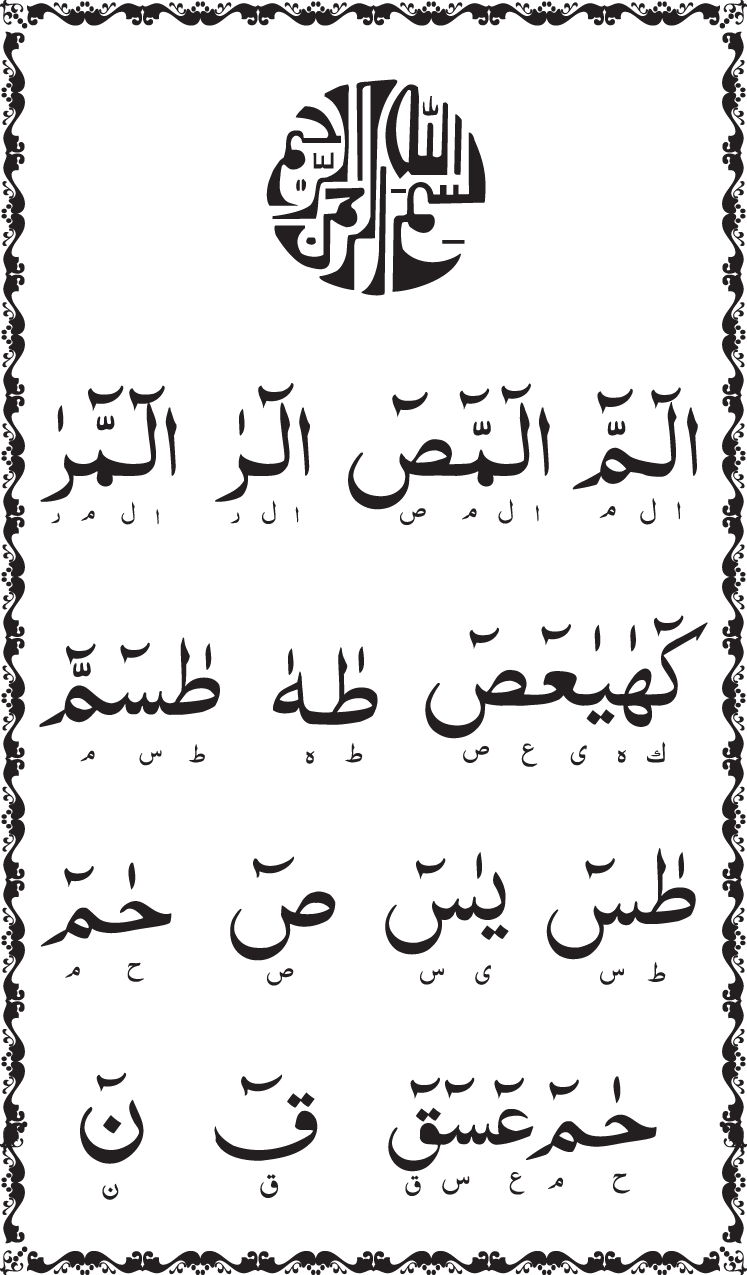 بسم الله الرحمن الرحيم
الٓمّٓ الٓمّٓصٓ الٓرٰ الٓمّٓرٰ
ا ل م ا ل م ص ا ل ر ا ل م ر
كٓهٰيٰعٓصٓ طٰهٰ طٰسٓمّٓ
ك ه ى ع ص ط ه ط س م
طٰسٓ يٰسٓ صٓ حٰمٓ
ط س ى س ص ح م
حٰمٓ عٓسٓقٓ قٓ نٓ
ح م ع س ق ق ن